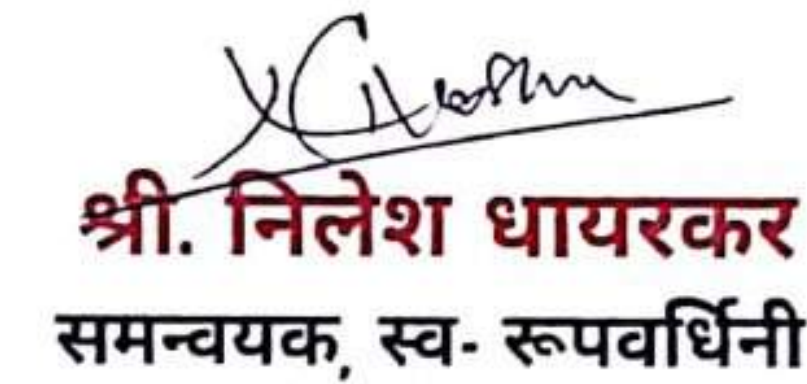 श्री. निलेश धायरकर
समन्वयक, स्व- रूपवर्धिनी